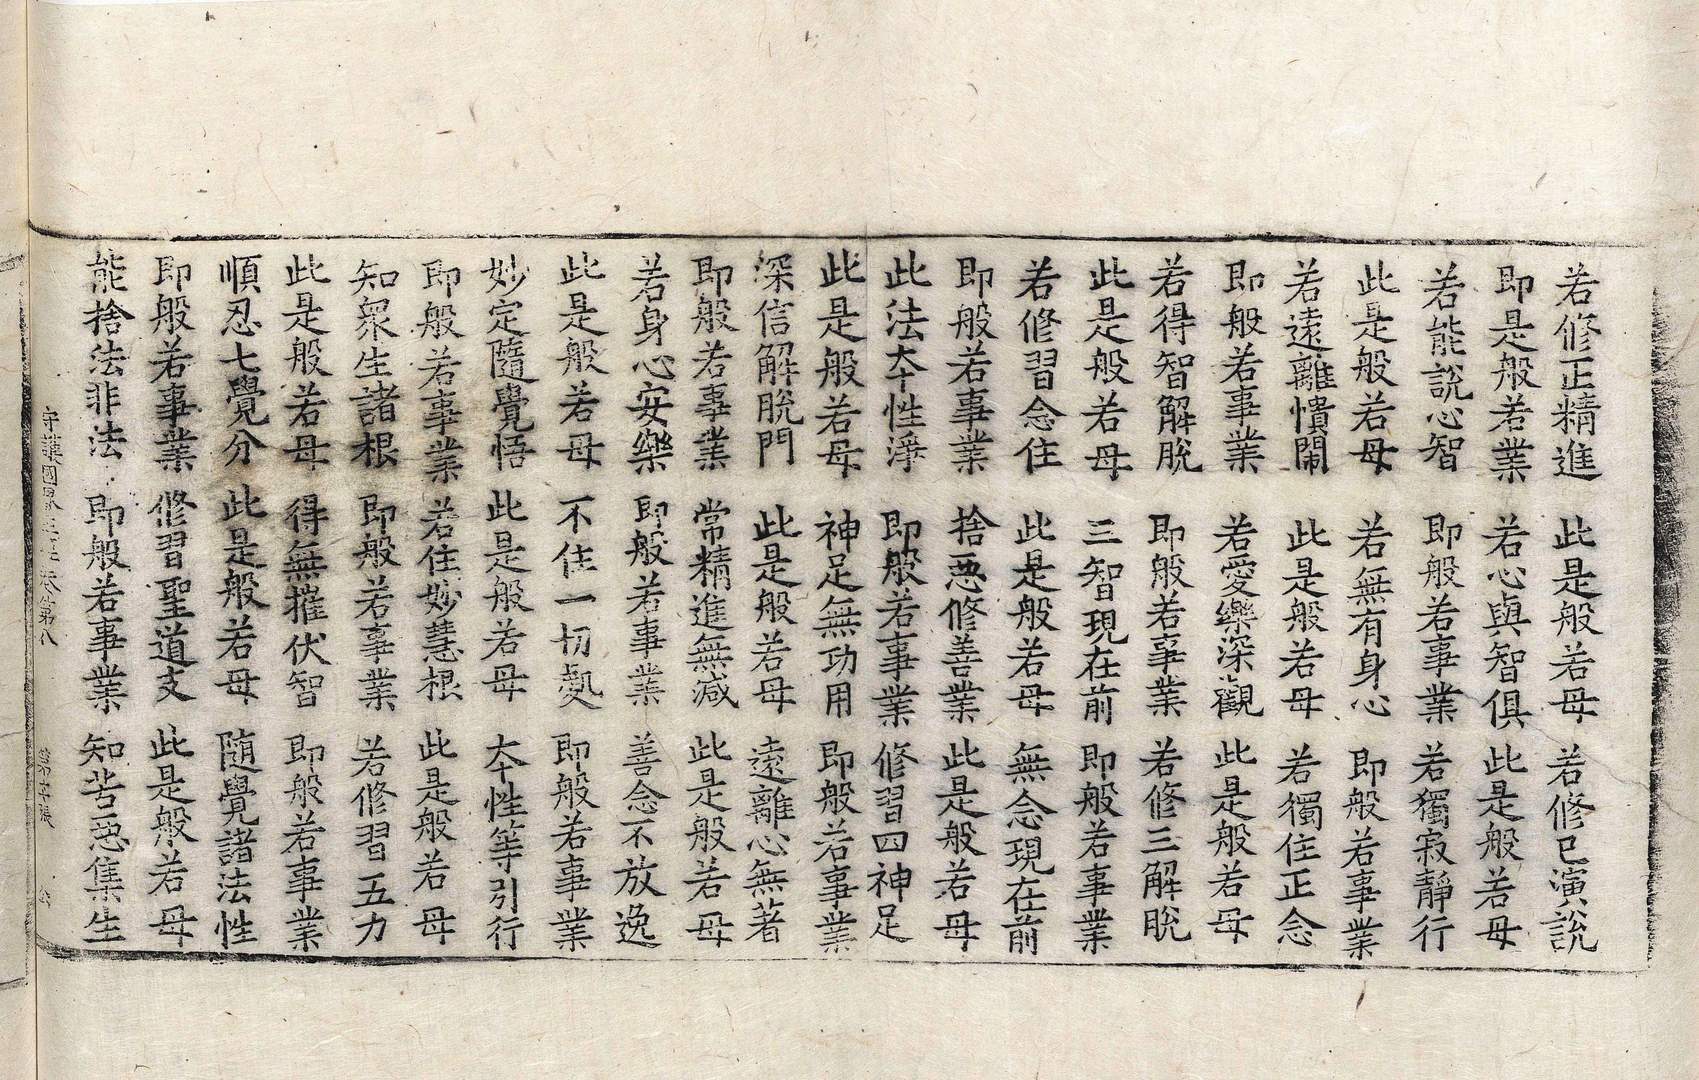 若修正精進 此是般若母 若修已演說
即是般若業 若心與智俱 此是般若母
若能說心智 即般若事業 若獨寂靜行
此是般若母 若無有身心 即般若事業
若遠離憒閙 此是般若母 若獨住正念
即般若事業 若愛樂深觀 此是般若母
若得智解脫 即般若事業 若修三解脫
此是般若母 三智現在前 即般若事業
若修習念住 此是般若母 無念現在前
即般若事業 捨惡修善業 此是般若母
此法夲性淨 即般若事業 修習四神足
此是般若母 神足無功用 即般若事業
深信解脫門 此是般若母 遠離心無著
即般若事業 常精進無減 此是般若母
若身心安樂 即般若事業 善念不放逸
此是般若母 不住一切處 即般若事業
妙定隨覺悟 此是般若母 夲性等引行
即般若事業 若住妙慧根 此是般若母
知衆生諸根 即般若事業 若修習五力
此是般若母 得無摧伏智 即般若事業
順忍七覺分 此是般若母 隨覺諸法性
即般若事業 修習聖道支 此是般若母
能捨法非法 即般若事業 知苦惡集生
守護國界主 卷第八 第 張